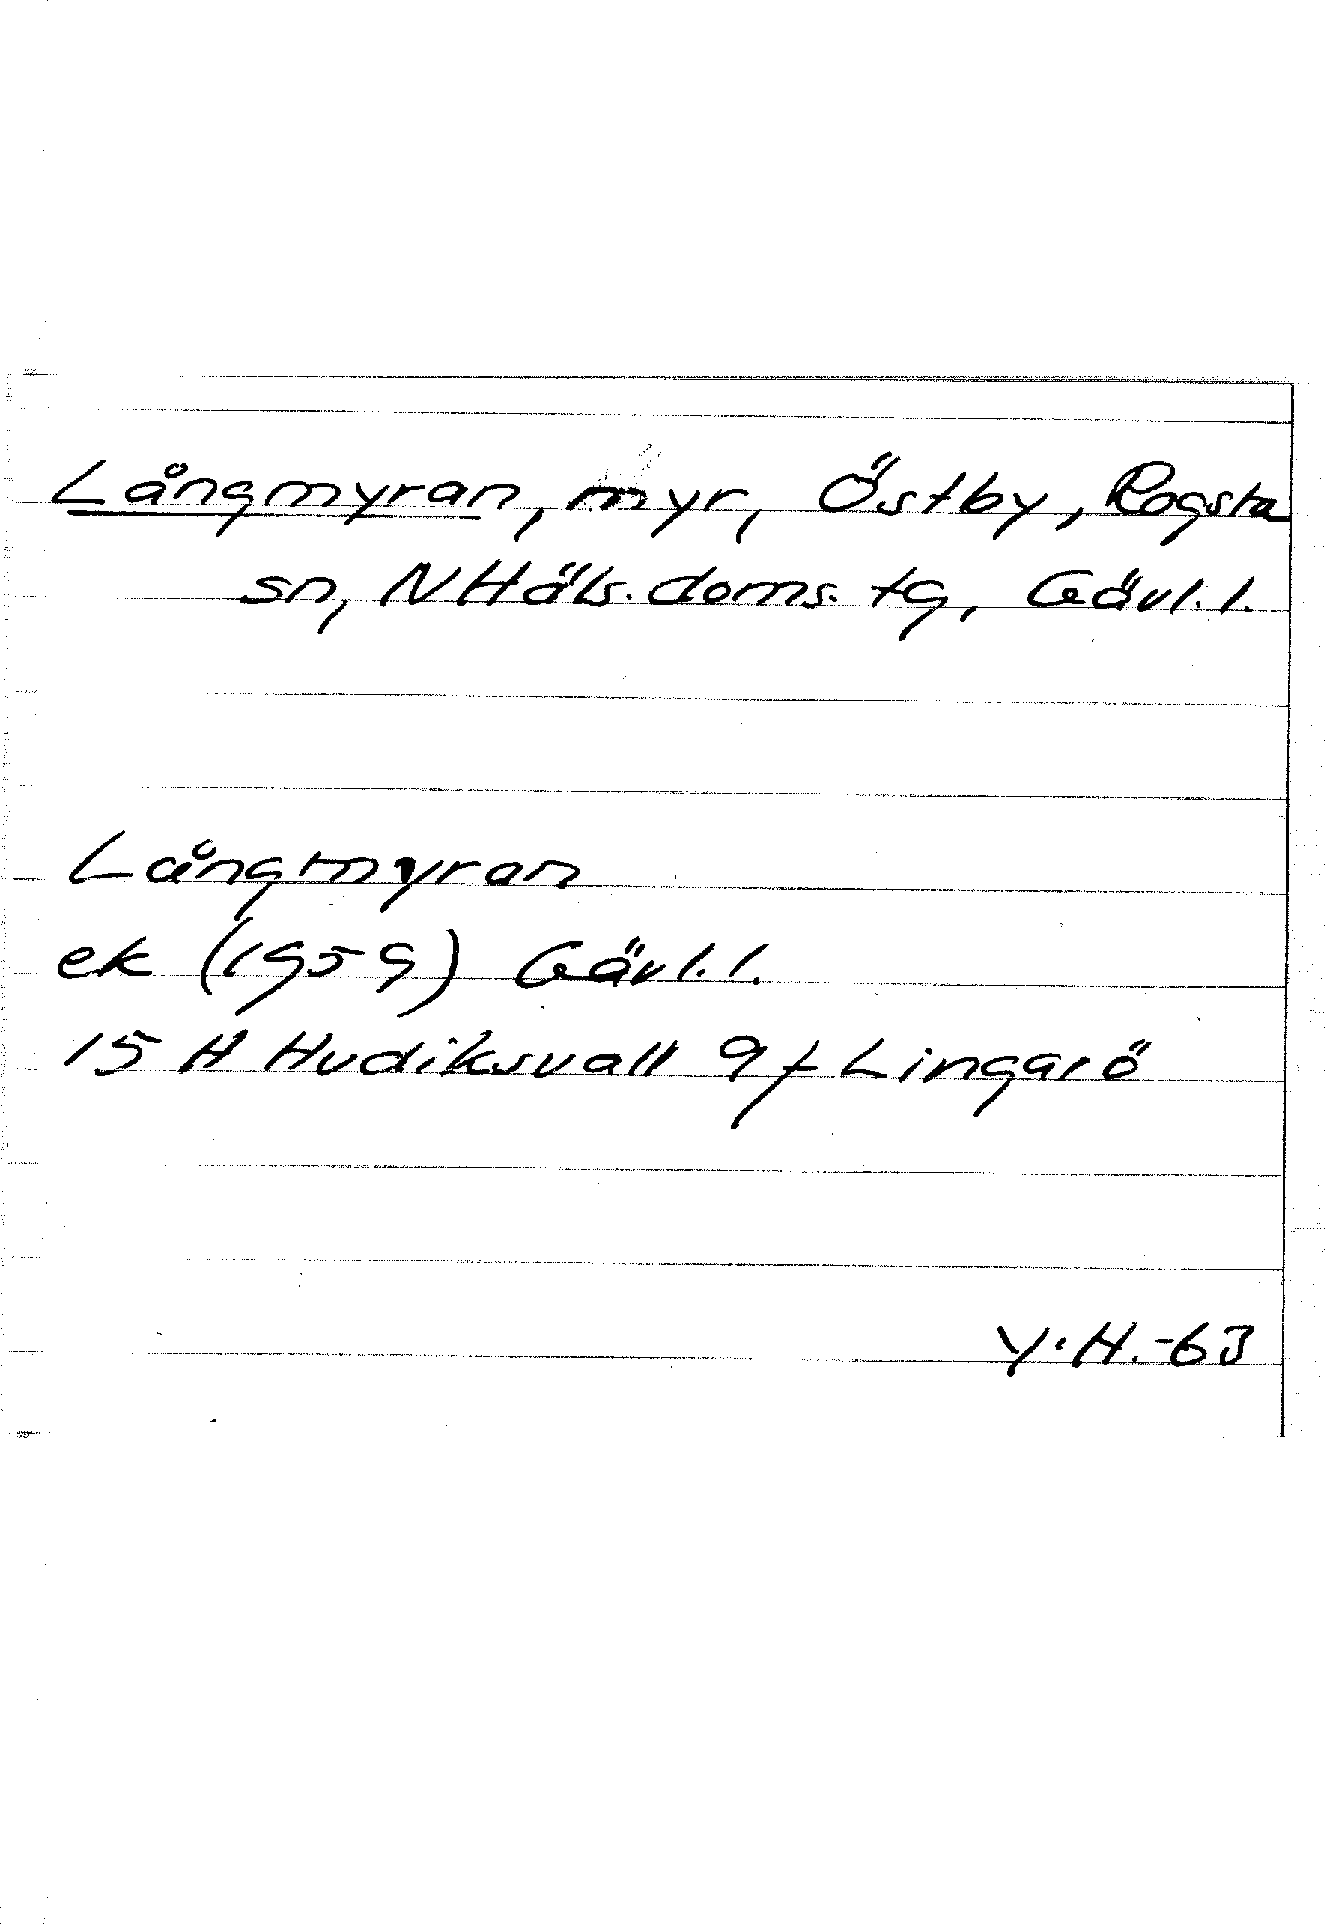 Långmyran, myr, Östby, Rogsta
sn, NHäls. doms. tg, Gävl. l.
Långmyran
ek (1959) Gävl. l.
15 H Hudiksvall 9f Lingarö
Y.H.-63